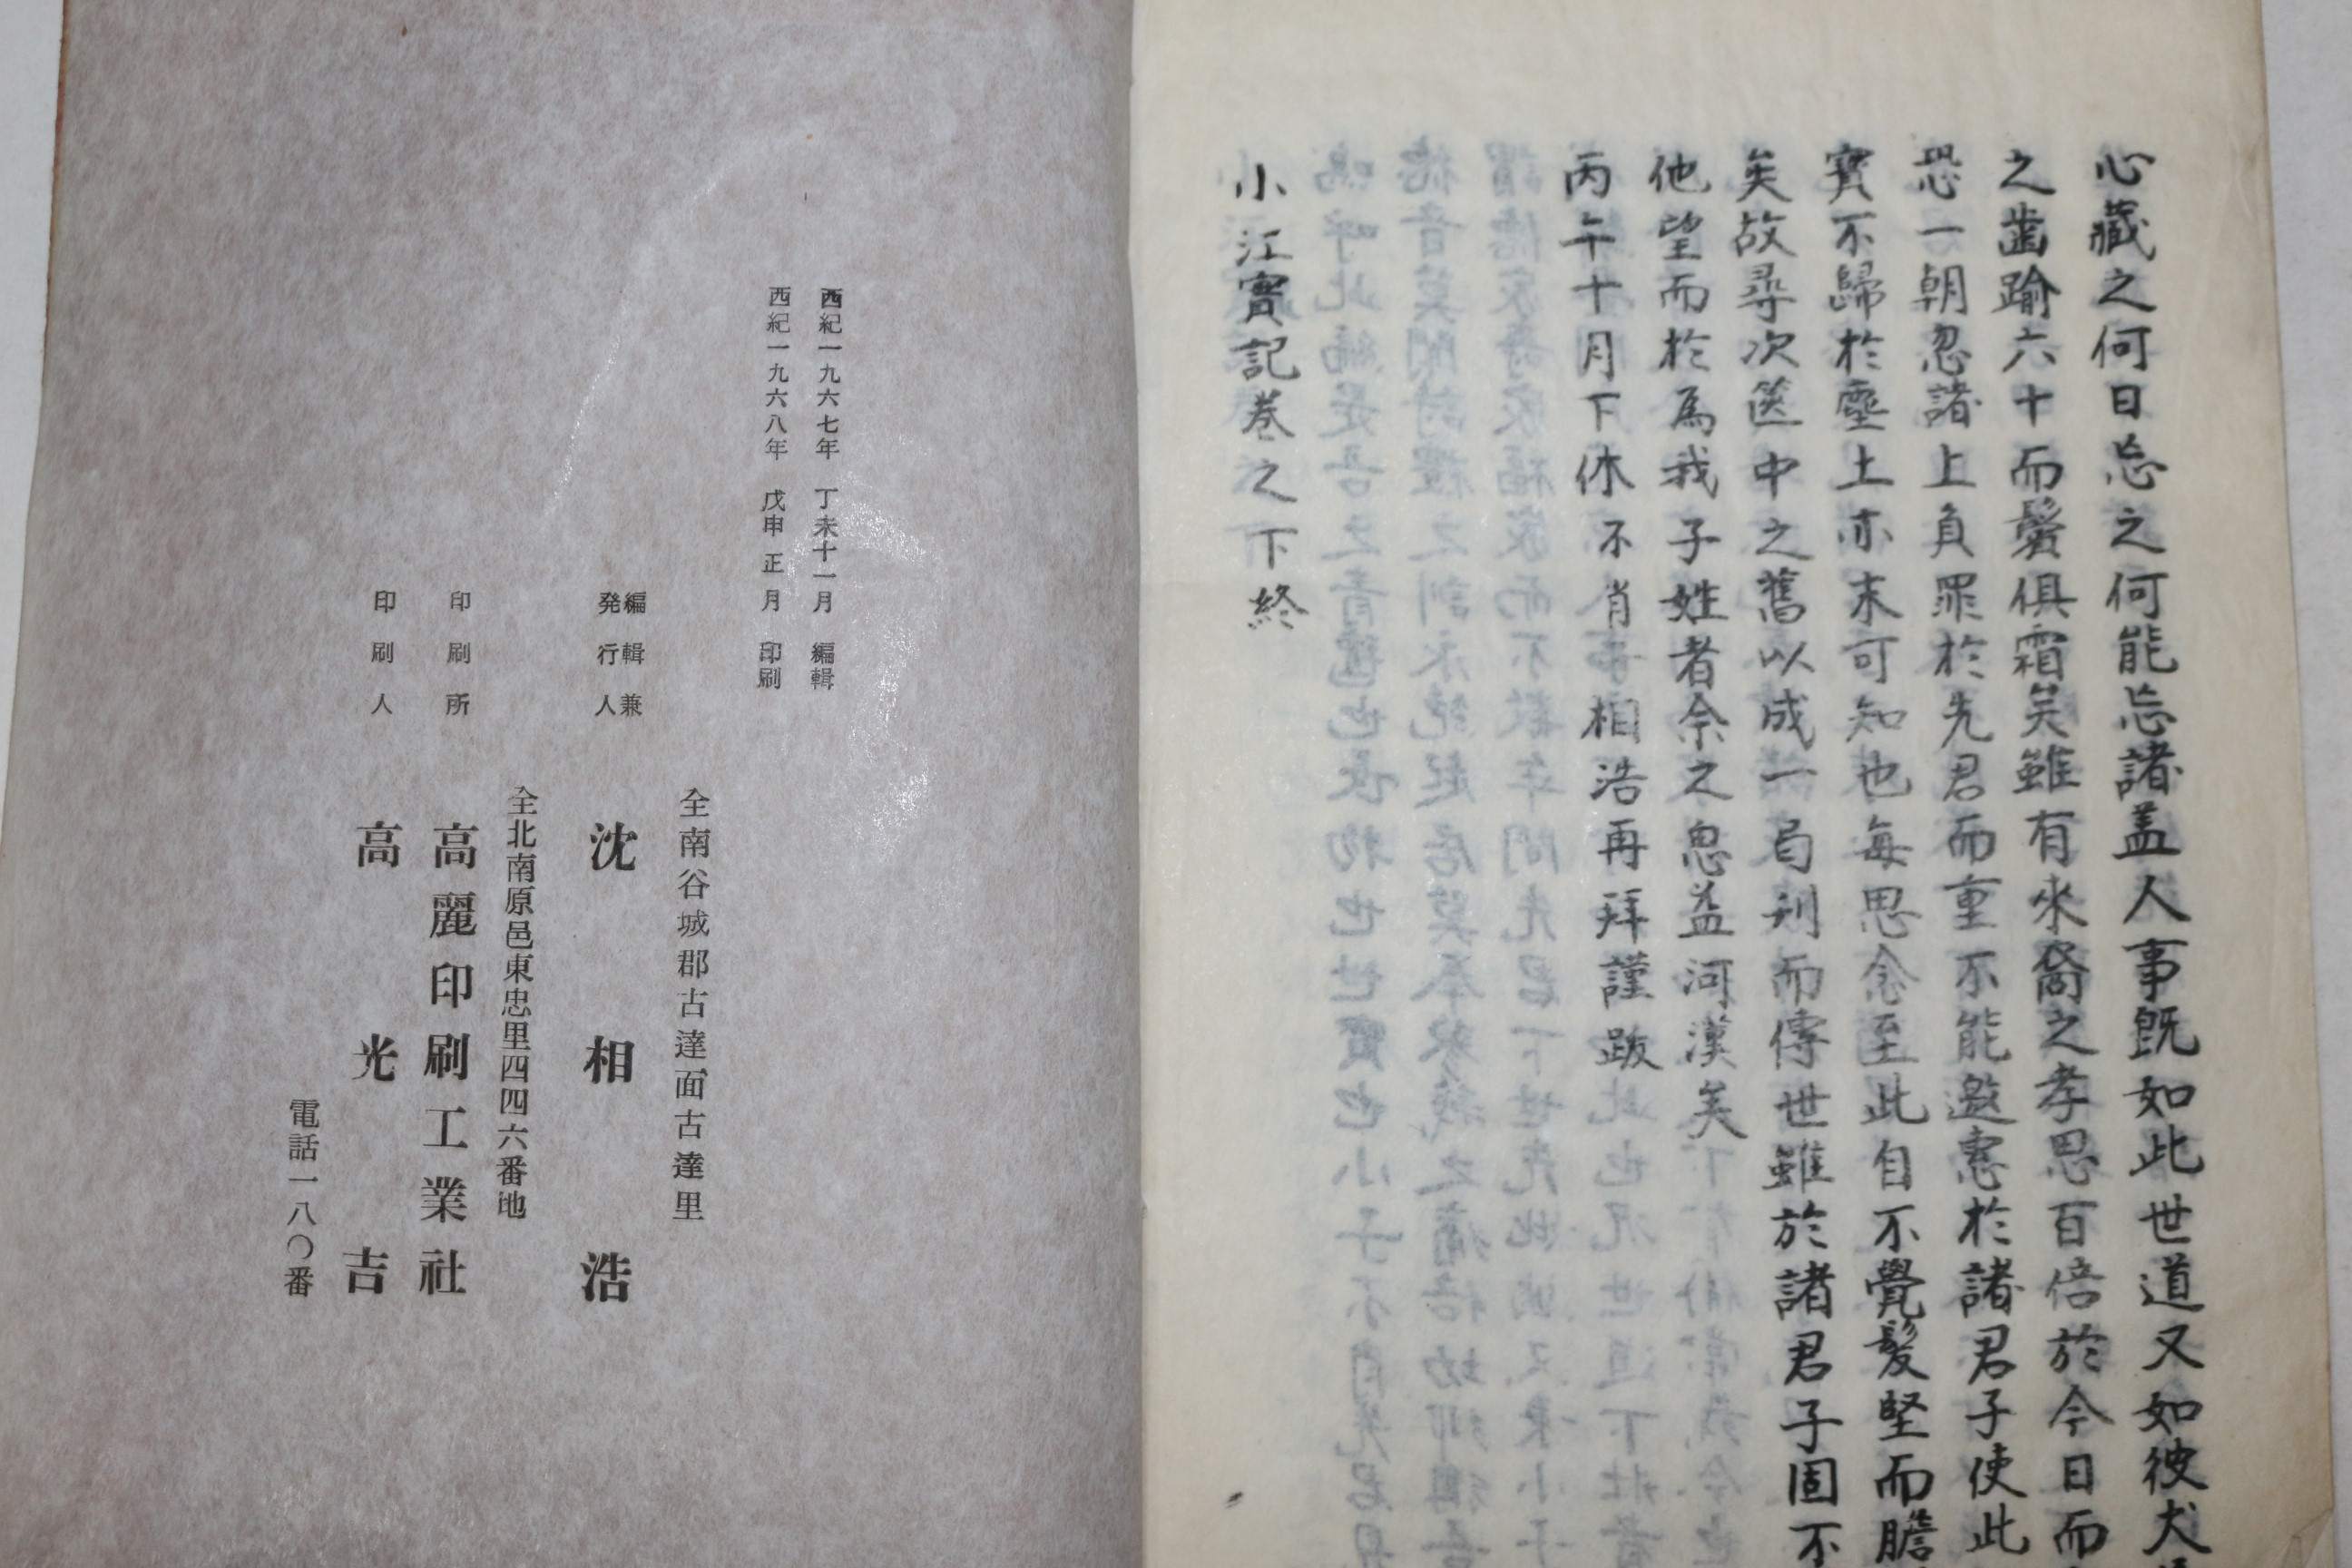 心藏之何日忘之何能忘諸盖人事旣如此世道又如彼犬
之齒踰六十而鬢俱霜矣雖有來裔之孝思百倍於今日而
恐一朝忽諸上負罪於先君而重不能邀惠於諸君子使此
寶不歸於塵土亦未可知也每思念至此自不覺髮堅而膽
矣故尋次篋中之舊以成一局刋而傳世雖於諸君子固不
他望而於爲我子姓者余之思益河漢矣
丙午十月下休不肖相浩再拜謹跋
小江實記卷之下終
西紀一九六七年 丁未十一月 編輯
西紀一九六八年 戊申正月 印刷
全南谷城郡古達面古達里
編輯兼
発行人 沈相浩
全北南原邑東忠里四四六番地
印刷所 高麗印刷工業社
印刷人 高光吉
電話一八〇番